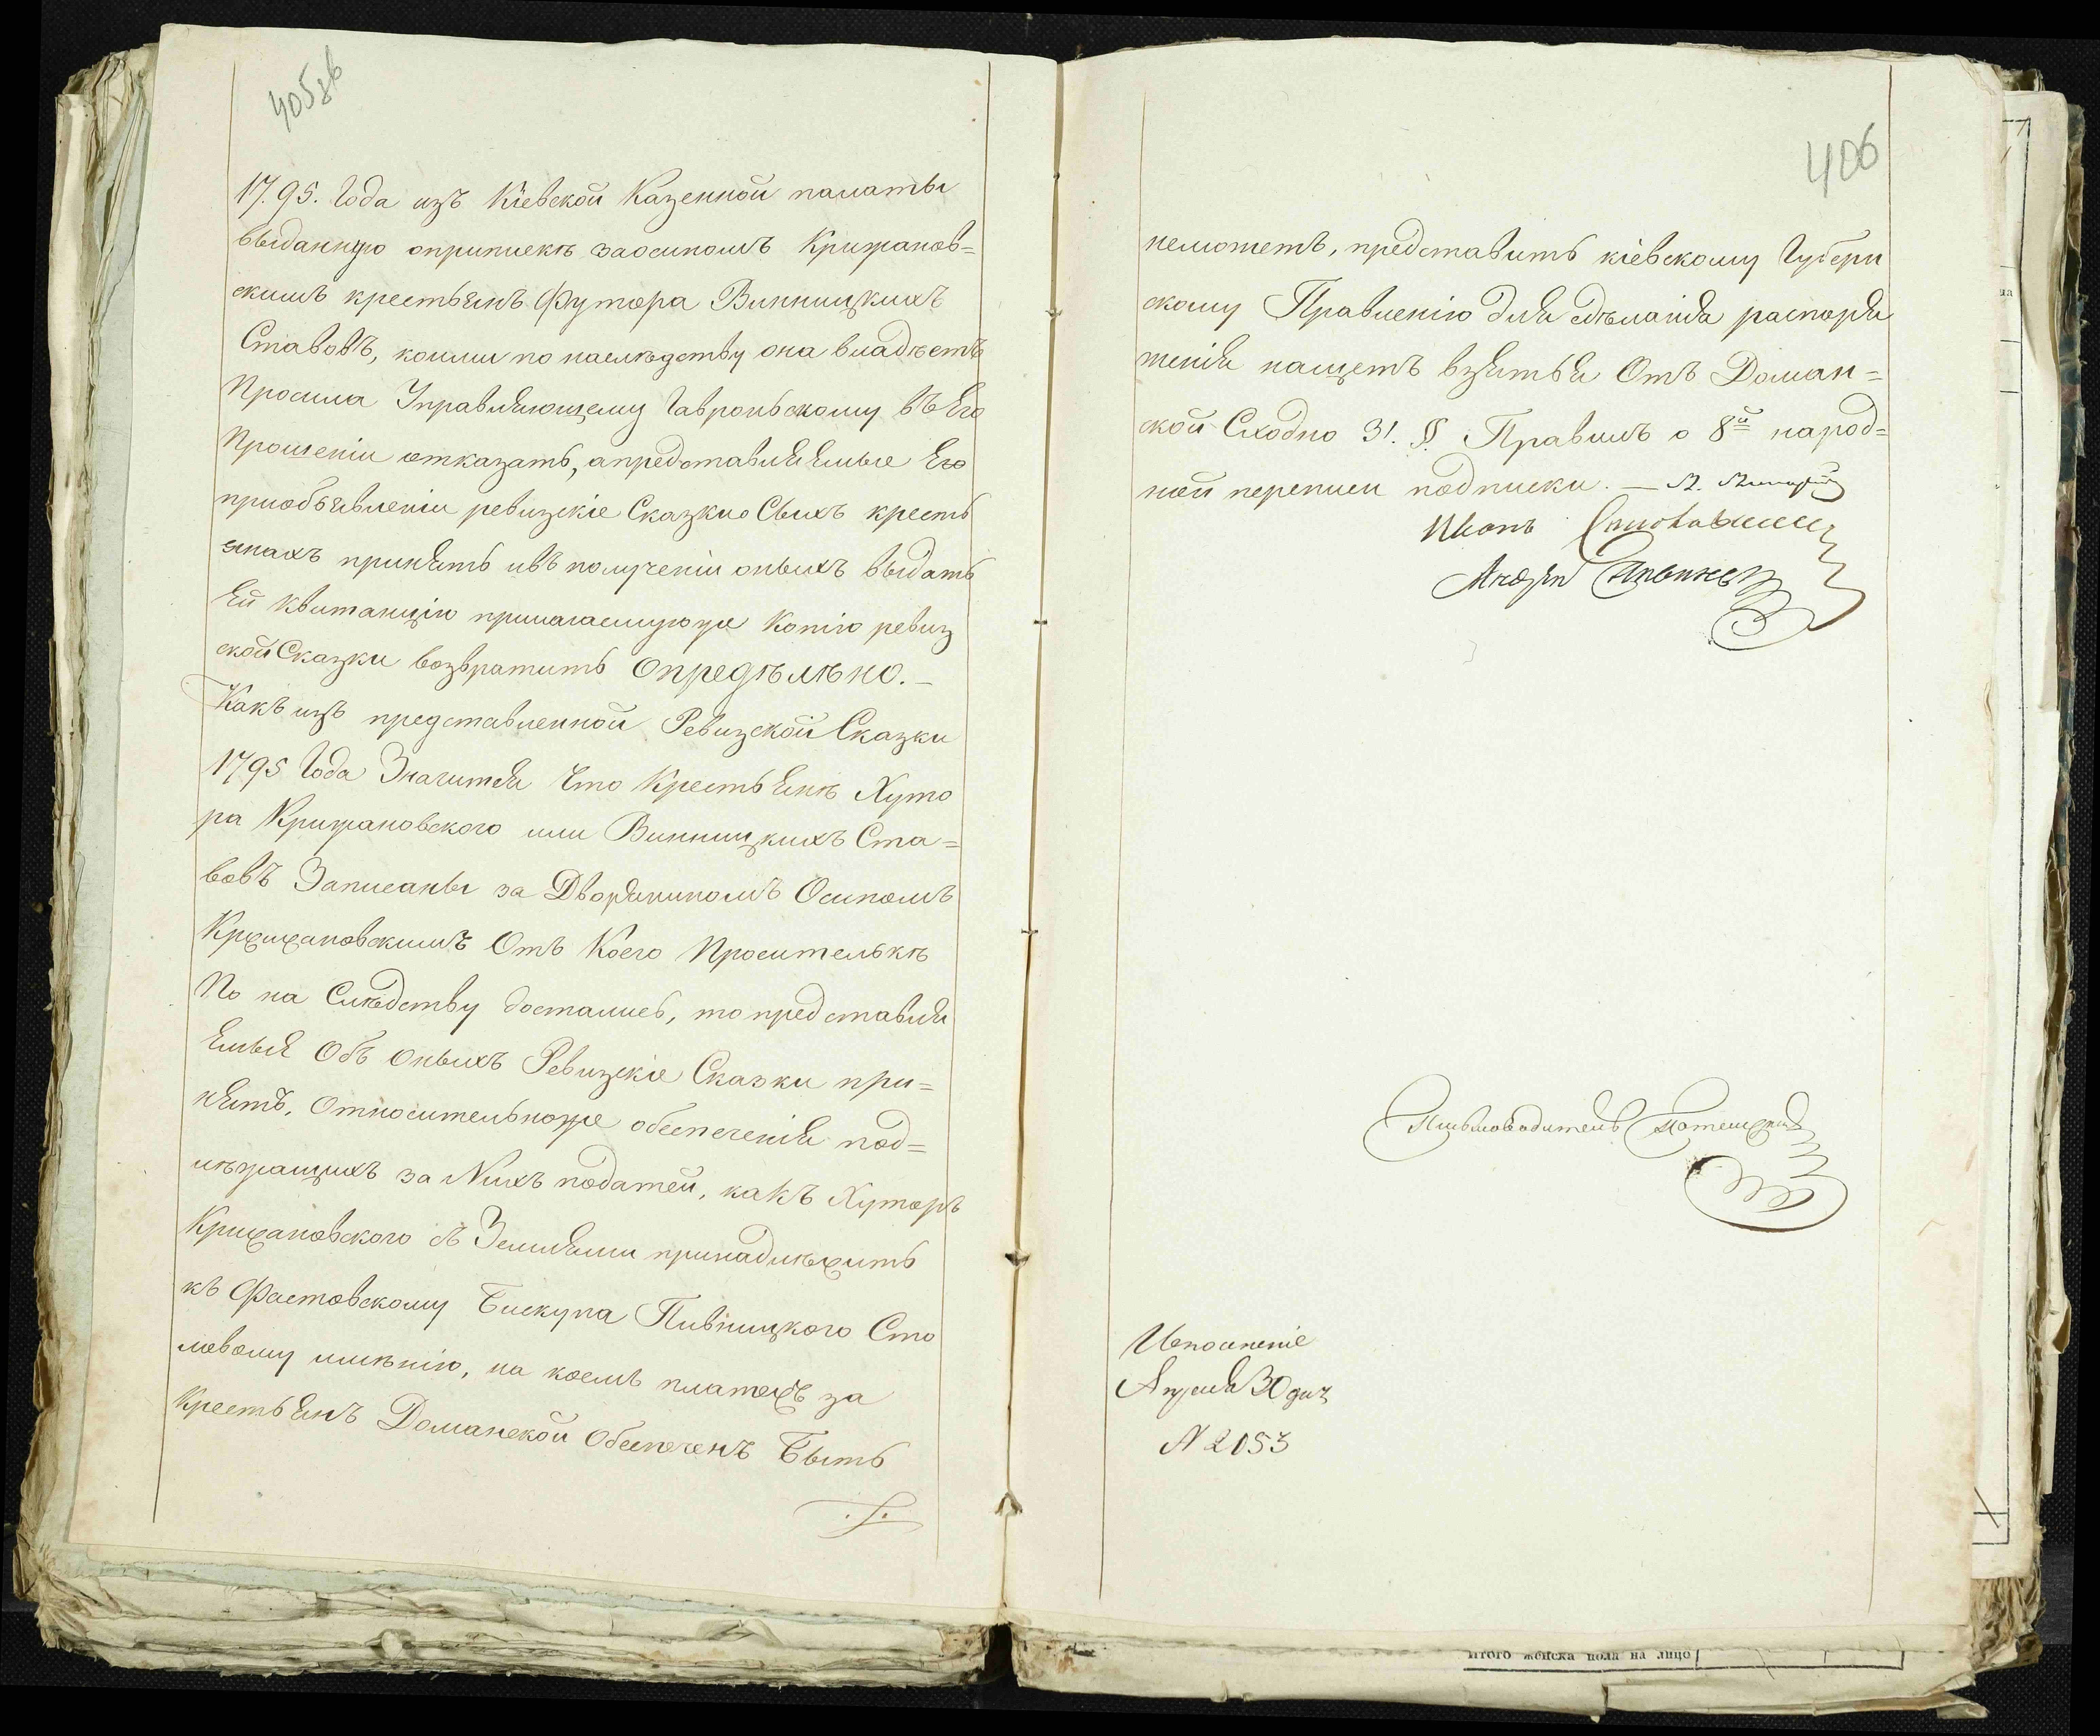 405зв
17.95. Года изъ Кіевской Казенной палаты
выданную оприпискѣ заосипомъ Крижанов=
скимъ крестьянъ Футора Винницкихъ
Ставовъ, коими по наслѣдству она владѣетъ
Просила Управляющему Гавроньскому въ Его
Прошеніи отказать, апредставляемые Его
приобъявленіи ревизскіе Сказки о Сихъ кресть
янахъ принять ивъ полученіи оныхъ выдать
Ей квитанцію прилагаемуюже Копію ревиз
ской Сказки возвратить Опредѣлѣно. —
Какъ изъ представленной Ревизской Сказки
1795 Года Значится Что Крестьянѣ Хуто
ра Крижановского или Винницкихъ Ста=
вовъ Записаны за Дворяниномъ Осипомъ
Крижановскимъ Отъ Коего Просителькѣ
По на Слѣдству достались, то представля
Емыя Объ Оныхъ Ревизскіе Сказки при=
нять, Относительноже обеспеченія под=
лѣжащихъ за Нихъ податей, какъ Хуторъ
Крижановского съ Землями принадлѣжитъ
къ Фастовскому Бискупа Пивницкого Сто
ловому имѣнію, на коемъ платежъ за
Крестьянъ Доманской Обеспеченъ Быть
406
неможетъ, представить кіевскому Губерн
скому Правленію для сдѣланія распоря
женія нащетъ взятья Отъ Доман=
ской Сходно 31. § Правилъ о 8й народ=
ной переписи подписки. —
Письмоводитель
Исполненіе
Апреля 30 дня
N 2053
итого женска пола на лицо